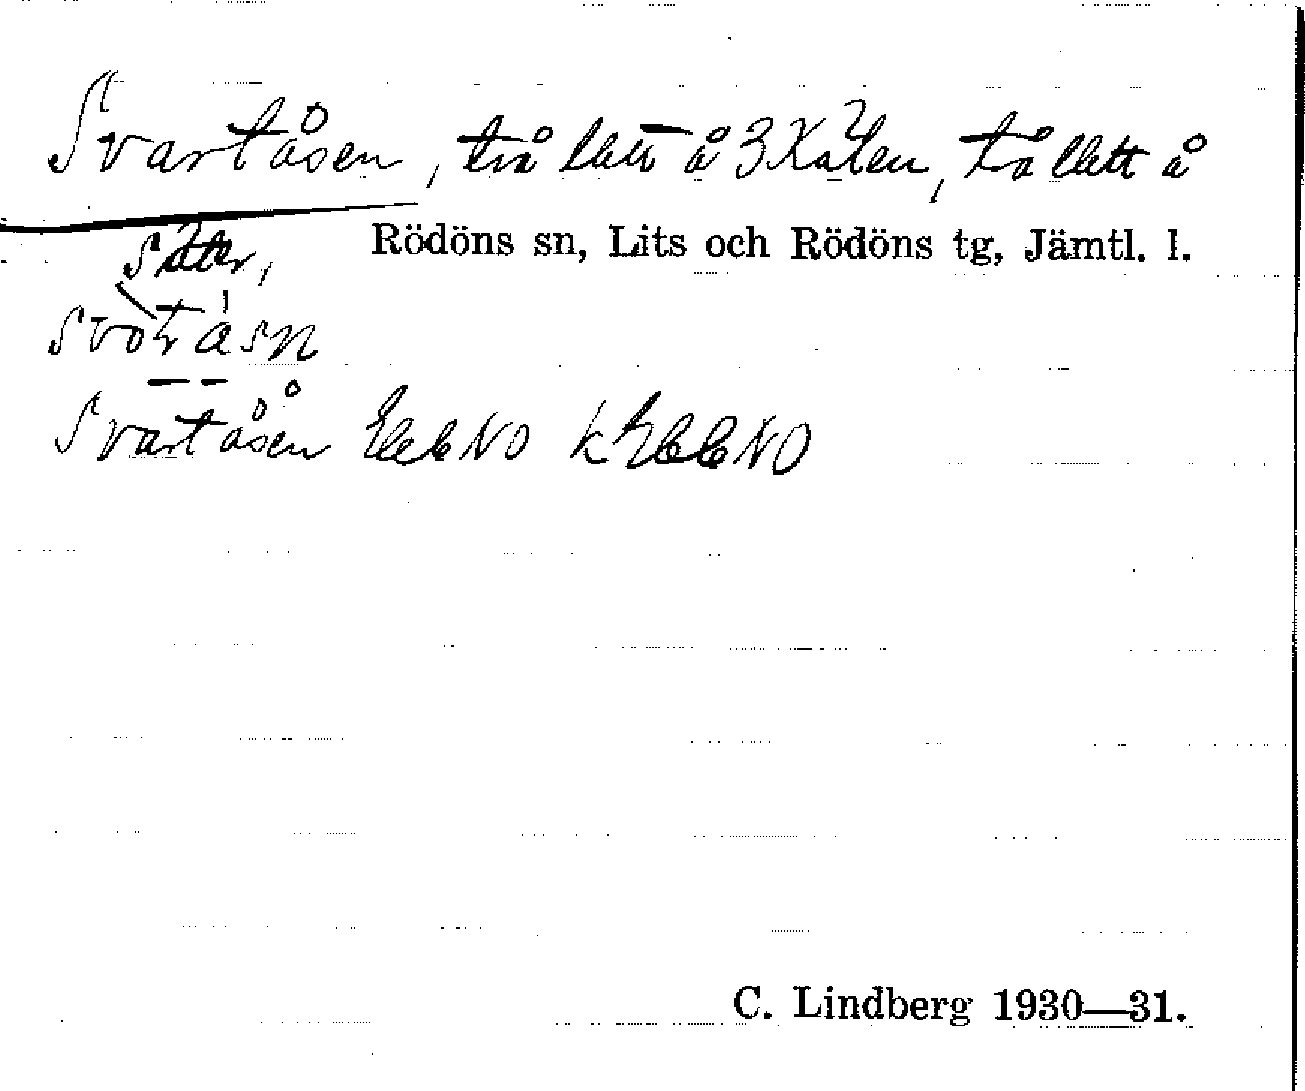 Svartåsen, två lätt å 3 Kålen, tå lätt å
Rödöns sn, Lits och Rödöns tg, Jämtl. l.
säter,
svoṭåsn
Svartåsen NO k NO
C. Lindberg 1930—31.